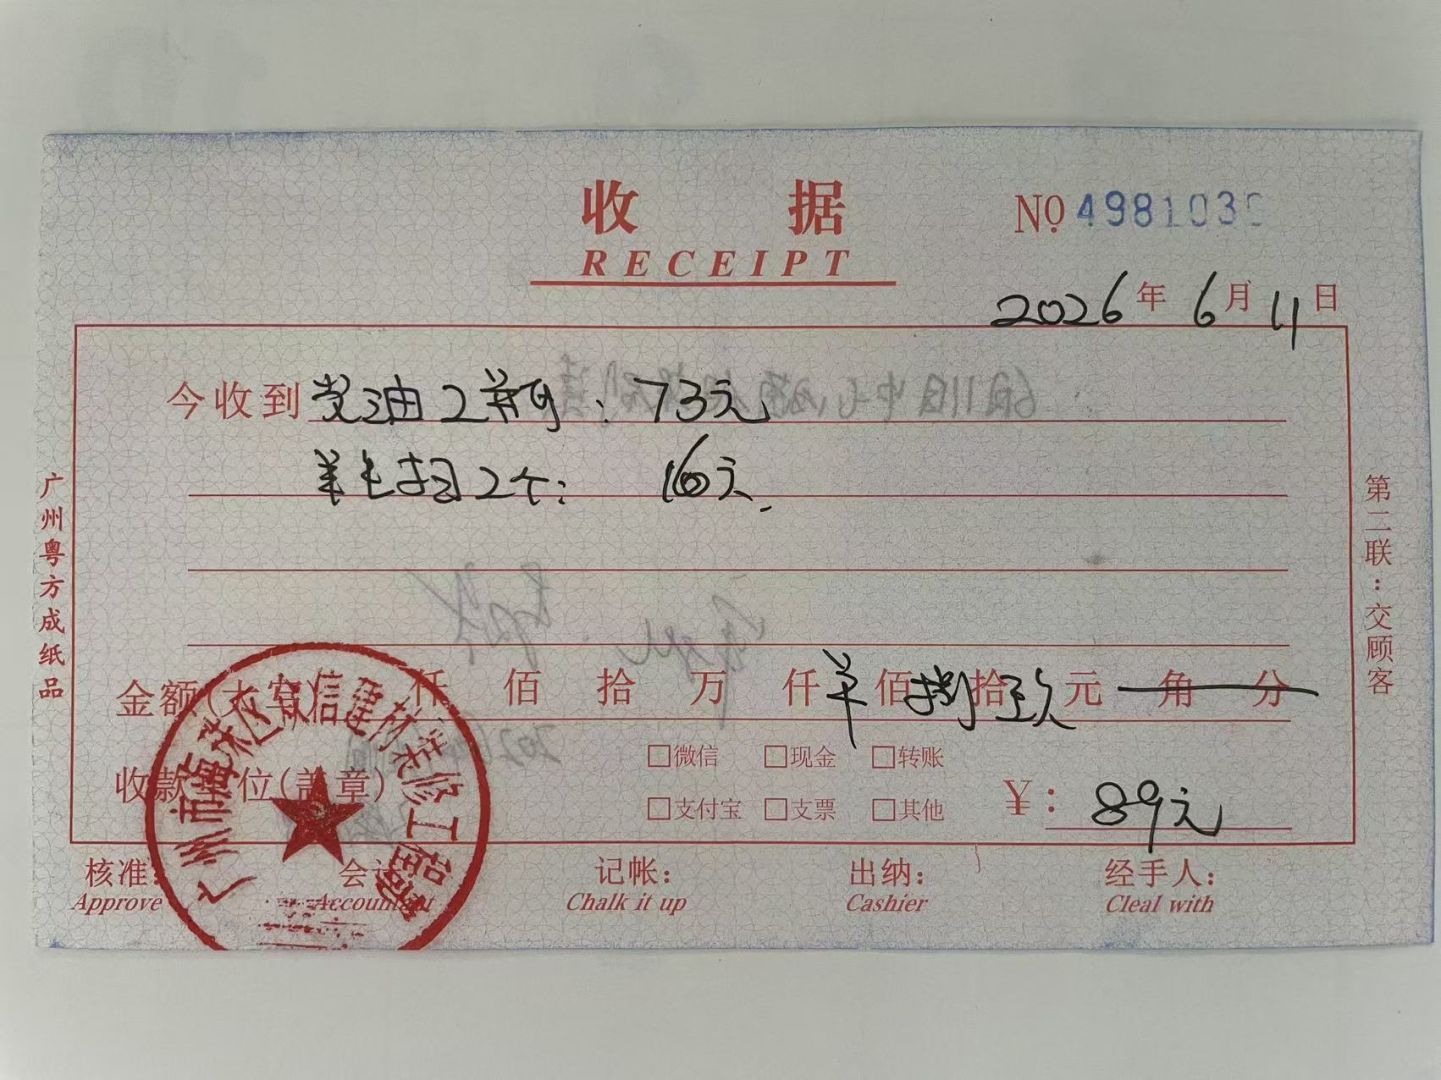 收 据
RECEIPT
№ 498103
2026年 6月 11日
今收到 2 : 73元
羊毛 2个: 16元
金额(大写) 仟 佰 拾 万 仟 佰 捌拾 玖元 角 分
收款单位(盖章)
□微信 □现金 □转账
□支付宝 □支票 □其他
¥: 89元
核准: 会计 记帐: 出纳: 经手人:
Approve Accountant Chalk it up Cashier Cleal with
广州粤方成纸品
第二联:交顾客
广州市海珠区 信建材装修工程